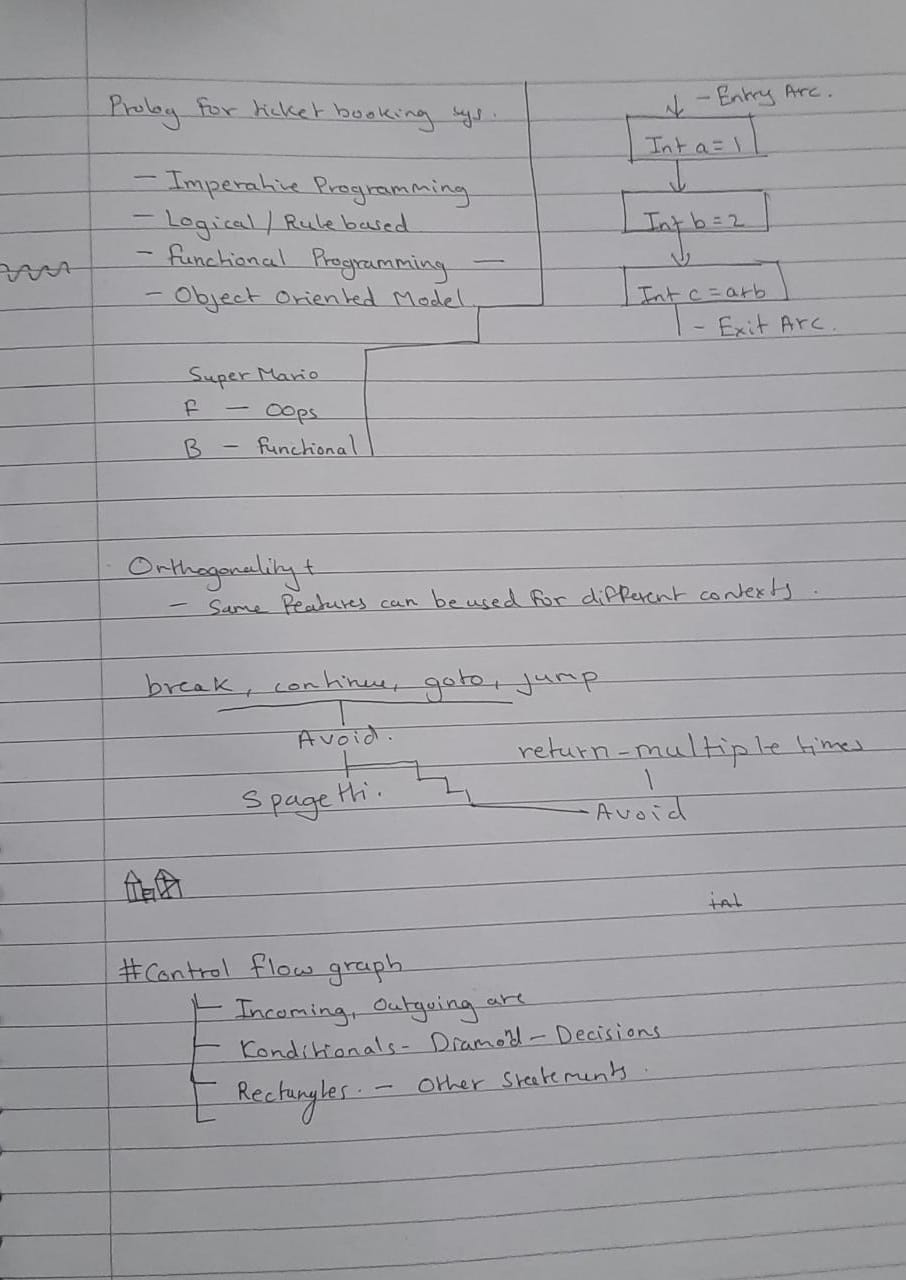 Prolog for ticket booking sys.
- Imperative Programming
- Logical / Rule based
- functional Programming -
- Object Oriented Model
Super Mario
F - Oops
B - functional
- Entry Arc.
Int a = 1
Int b = 2
Int c = a+b
- Exit Arc.
Orthogonality +
- Same features can be used for different contexts.
break, continue, goto, jump
Avoid.
Spagetti.
return - multiple times
Avoid
int
#Control flow graph
Incoming, Outgoing arc
Konditionals - Diamod - Decisions
Rectangles. - Other Statements.